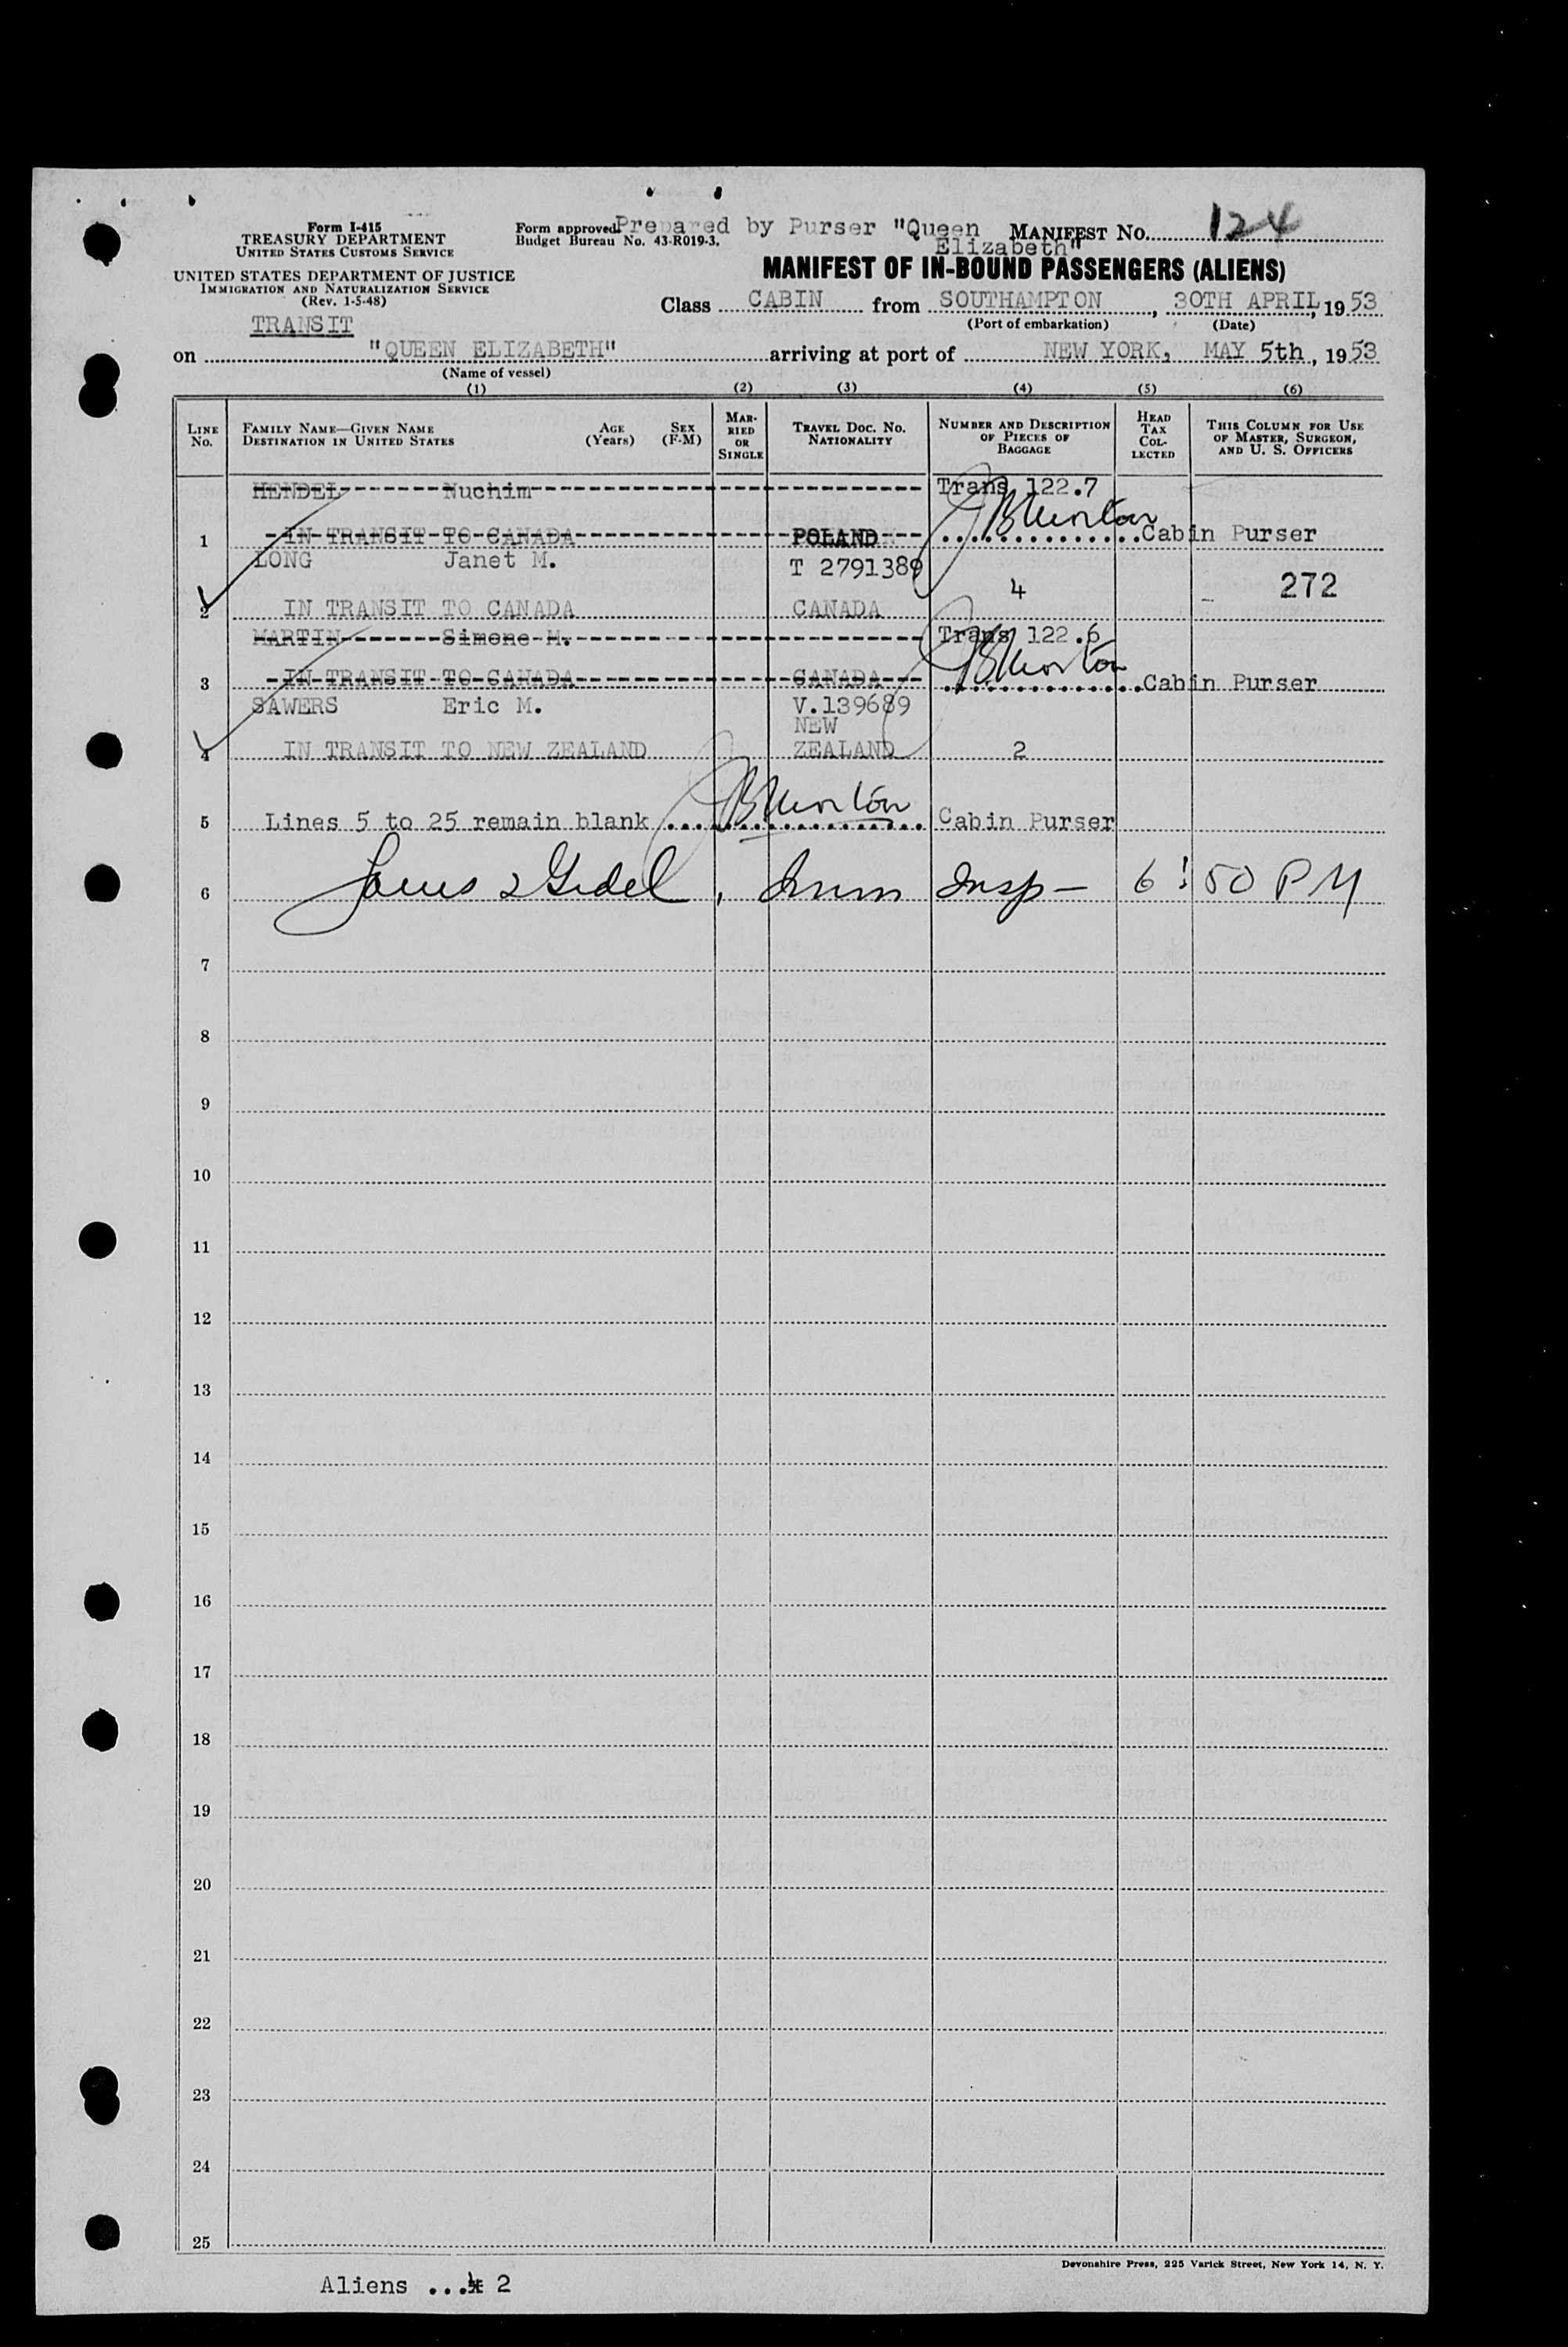 Form I-415
TREASURY DEPARTMENT
UNITED STATES CUSTOMS SERVICE
UNITED STATES DEPARTMENT OF JUSTICE
IMMIGRATION AND NATURALIZATION SERVICE
(Rev. 1-5-48)
TRANSIT
Form approved.
Budget Bureau No. 43-R019-3.
Prepared by Purser "Queen
Elizabeth"
MANIFEST NO. 124
MANIFEST OF IN-BOUND PASSENGERS (ALIENS)
Class CABIN from SOUTHAMPTON, 30TH APRIL, 1953
(Port of embarkation) (Date)
on "QUEEN ELIZABETH" arriving at port of NEW YORK, MAY 5th, 1953
(Name of vessel)
(1) (2) (3) (4) (5) (6)
LINE NO.
FAMILY NAME—GIVEN NAME
DESTINATION IN UNITED STATES
AGE (Years)
SEX (F-M)
MARRIED OR SINGLE
TRAVEL DOC. NO.
NATIONALITY
NUMBER AND DESCRIPTION OF PIECES OF BAGGAGE
HEAD TAX COLLECTED
THIS COLUMN FOR USE OF MASTER, SURGEON, AND U. S. OFFICERS
HENDEL Nuchim Trans 122.7
1 IN TRANSIT TO CANADA POLAND Cabin Purser
LONG Janet M. T 2791389
2 IN TRANSIT TO CANADA CANADA 4 272
MARTIN Simone M. Trans 122.6
3 IN TRANSIT TO CANADA CANADA Cabin Purser
SAWERS Eric M. V.139689
NEW
4 IN TRANSIT TO NEW ZEALAND ZEALAND 2
5 Lines 5 to 25 remain blank Cabin Purser
6 Imm Insp — 6:50 PM
7
8
9
10
11
12
13
14
15
16
17
18
19
20
21
22
23
24
25
Devonshire Press, 225 Varick Street, New York 14, N. Y.
Aliens ... 2